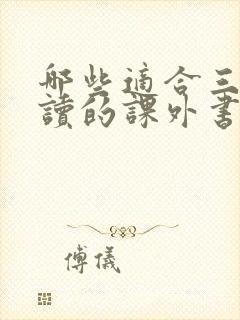 哪些適合三
讀的課外書
傅儀